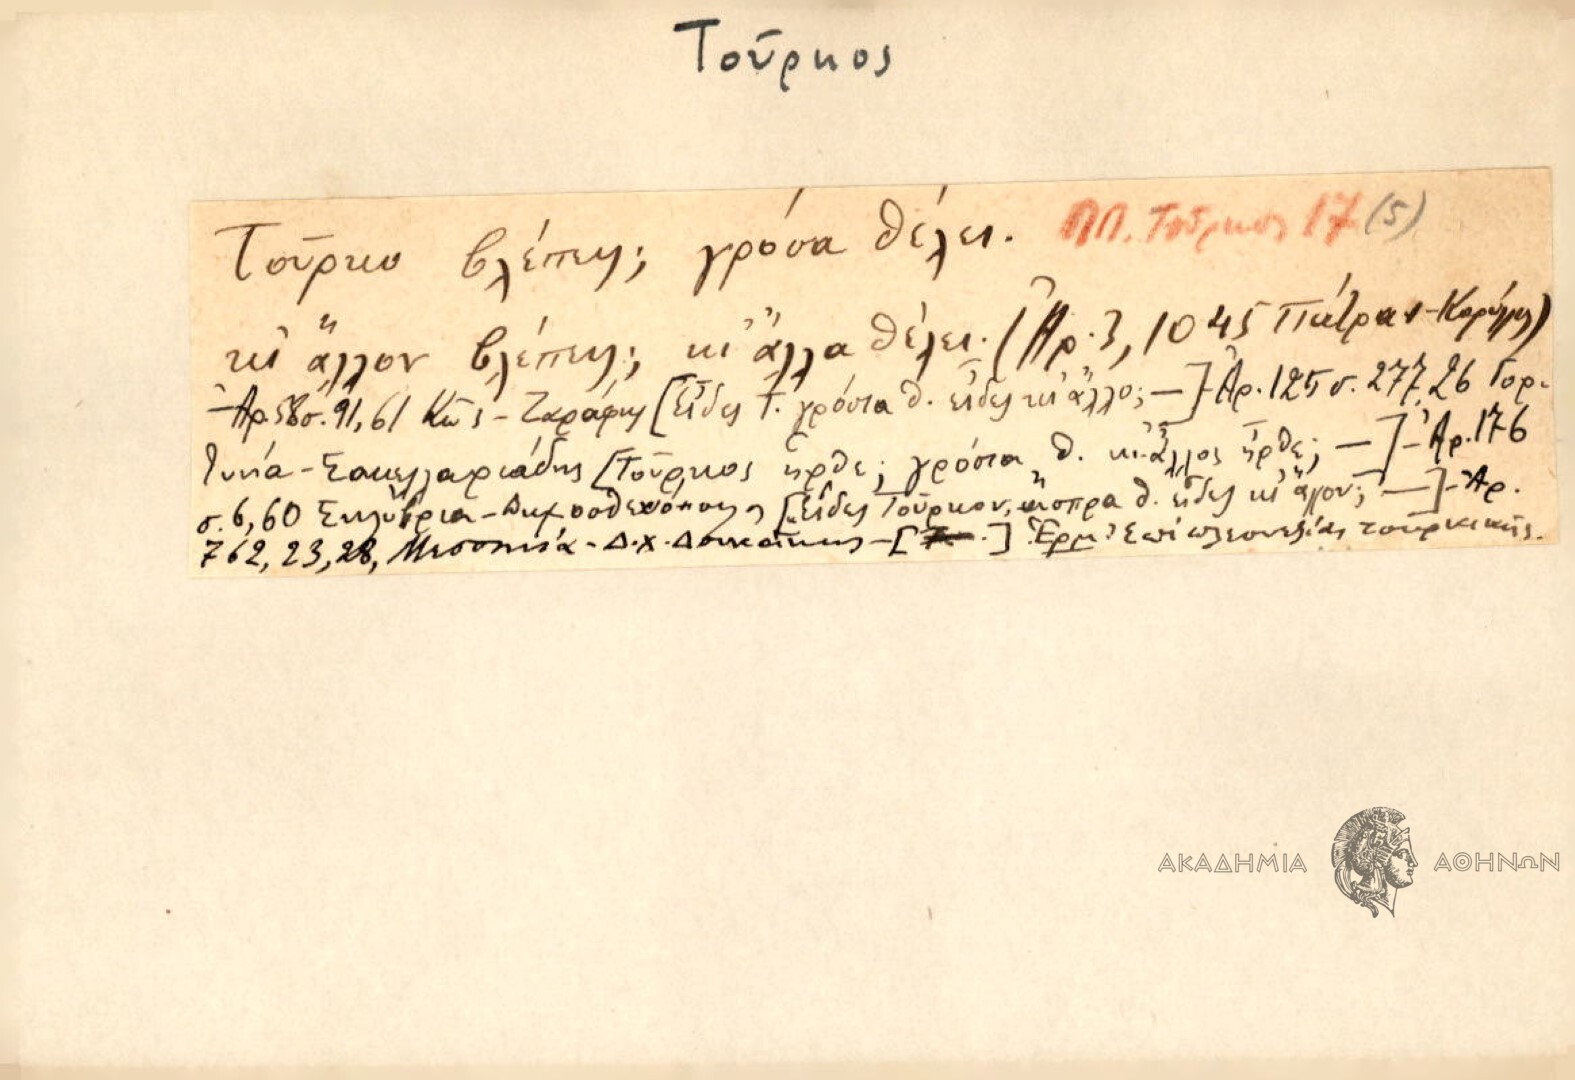 Τοῦρκος
Τοῦρκο βλέπεις; γρόσα θέλει. ΠΠ. Τοῦρκος 17 (5)
κι' ἄλλον βλέπεις; κι' ἄλλα θέλει. (Ἀρ. 3, 1045 Πάτραι -
-Ἀρ. 58 σ. 91, 61 Κῶς - Ζαράφτης [Εἶδες Τ. γρόσια θ. εἶδες κι' ἄλλο; —] - Ἀρ. 125 σ. 277, 26 Γορ-
τυνία - Σακελλαριάδης [Τοῦρκος ἦρθε; γρόσια θ. κι' ἄλλος ἦρθε; —] - Ἀρ. 176
σ. 6, 60 Σηλύβρια - [Εἶδες Τοῦρκον, ἄσπρα θ. εἶδες κι' ἄλλον; —] - Ἀρ.
762, 23, 28, Μεσσηνία - Δ.Χ. Δουκάκης - [ ] Ἑρμ. Ἐπὶ πλεονεξίας τουρκικῆς.
ΑΚΑΔΗΜΙΑ ΑΘΗΝΩΝ